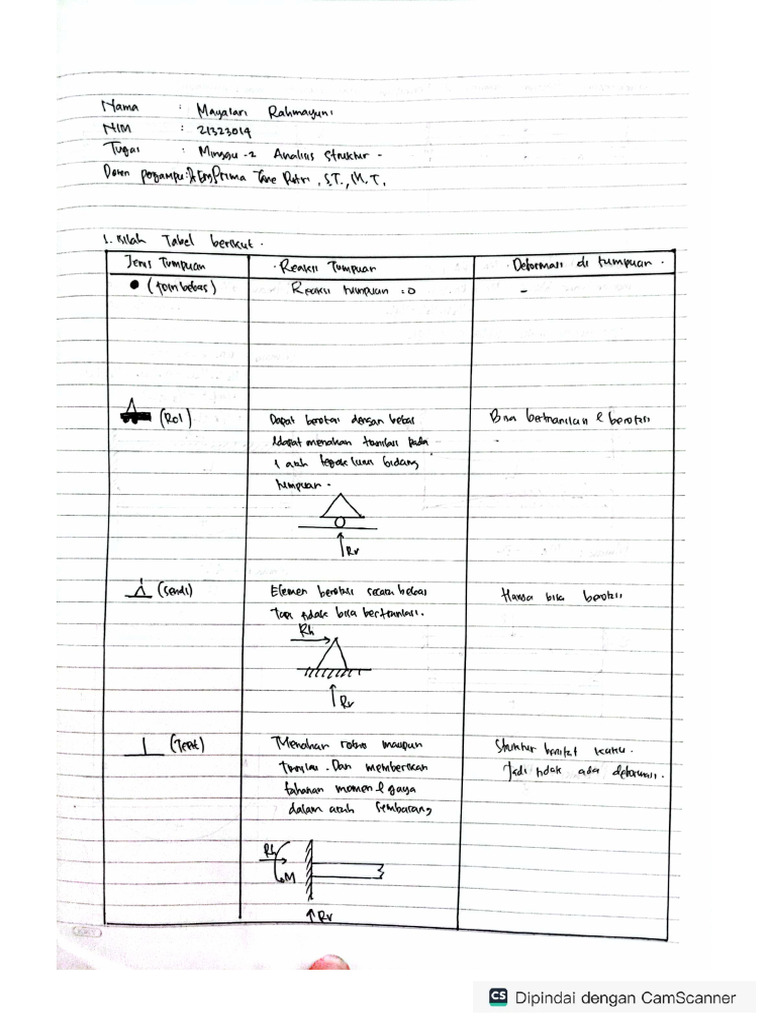 Nama : Mayalari Rahmayuni
NIM : 21323014
Tugas : Minggu -2 Analisis Struktur -
Dosen pengampu : Prima Yane Putri, S.T., M.T.
1. Isilah Tabel berikut.
Jenis Tumpuan
Reaksi Tumpuan
Deformasi di tumpuan.
(join bebas)
Reaksi tumpuan = 0
-
(Rol)
Dapat berotasi dengan bebas
dapat menahan translasi pada
1 arah tegak lurus bidang
tumpuan.
Rv
Bisa bertranslasi & berotasi
(sendi)
Elemen berotasi secara bebas
Tapi tidak bisa bertranlasi.
Rh
Rv
Hanya bisa berotasi
(Jepit)
Menahan rotasi maupun
translasi. Dan memberikan
tahanan momen & gaya
dalam arah sembarang
Rh
M
Rv
Struktur bersifat kaku.
Jadi tidak ada deformasi.
CS Dipindai dengan CamScanner